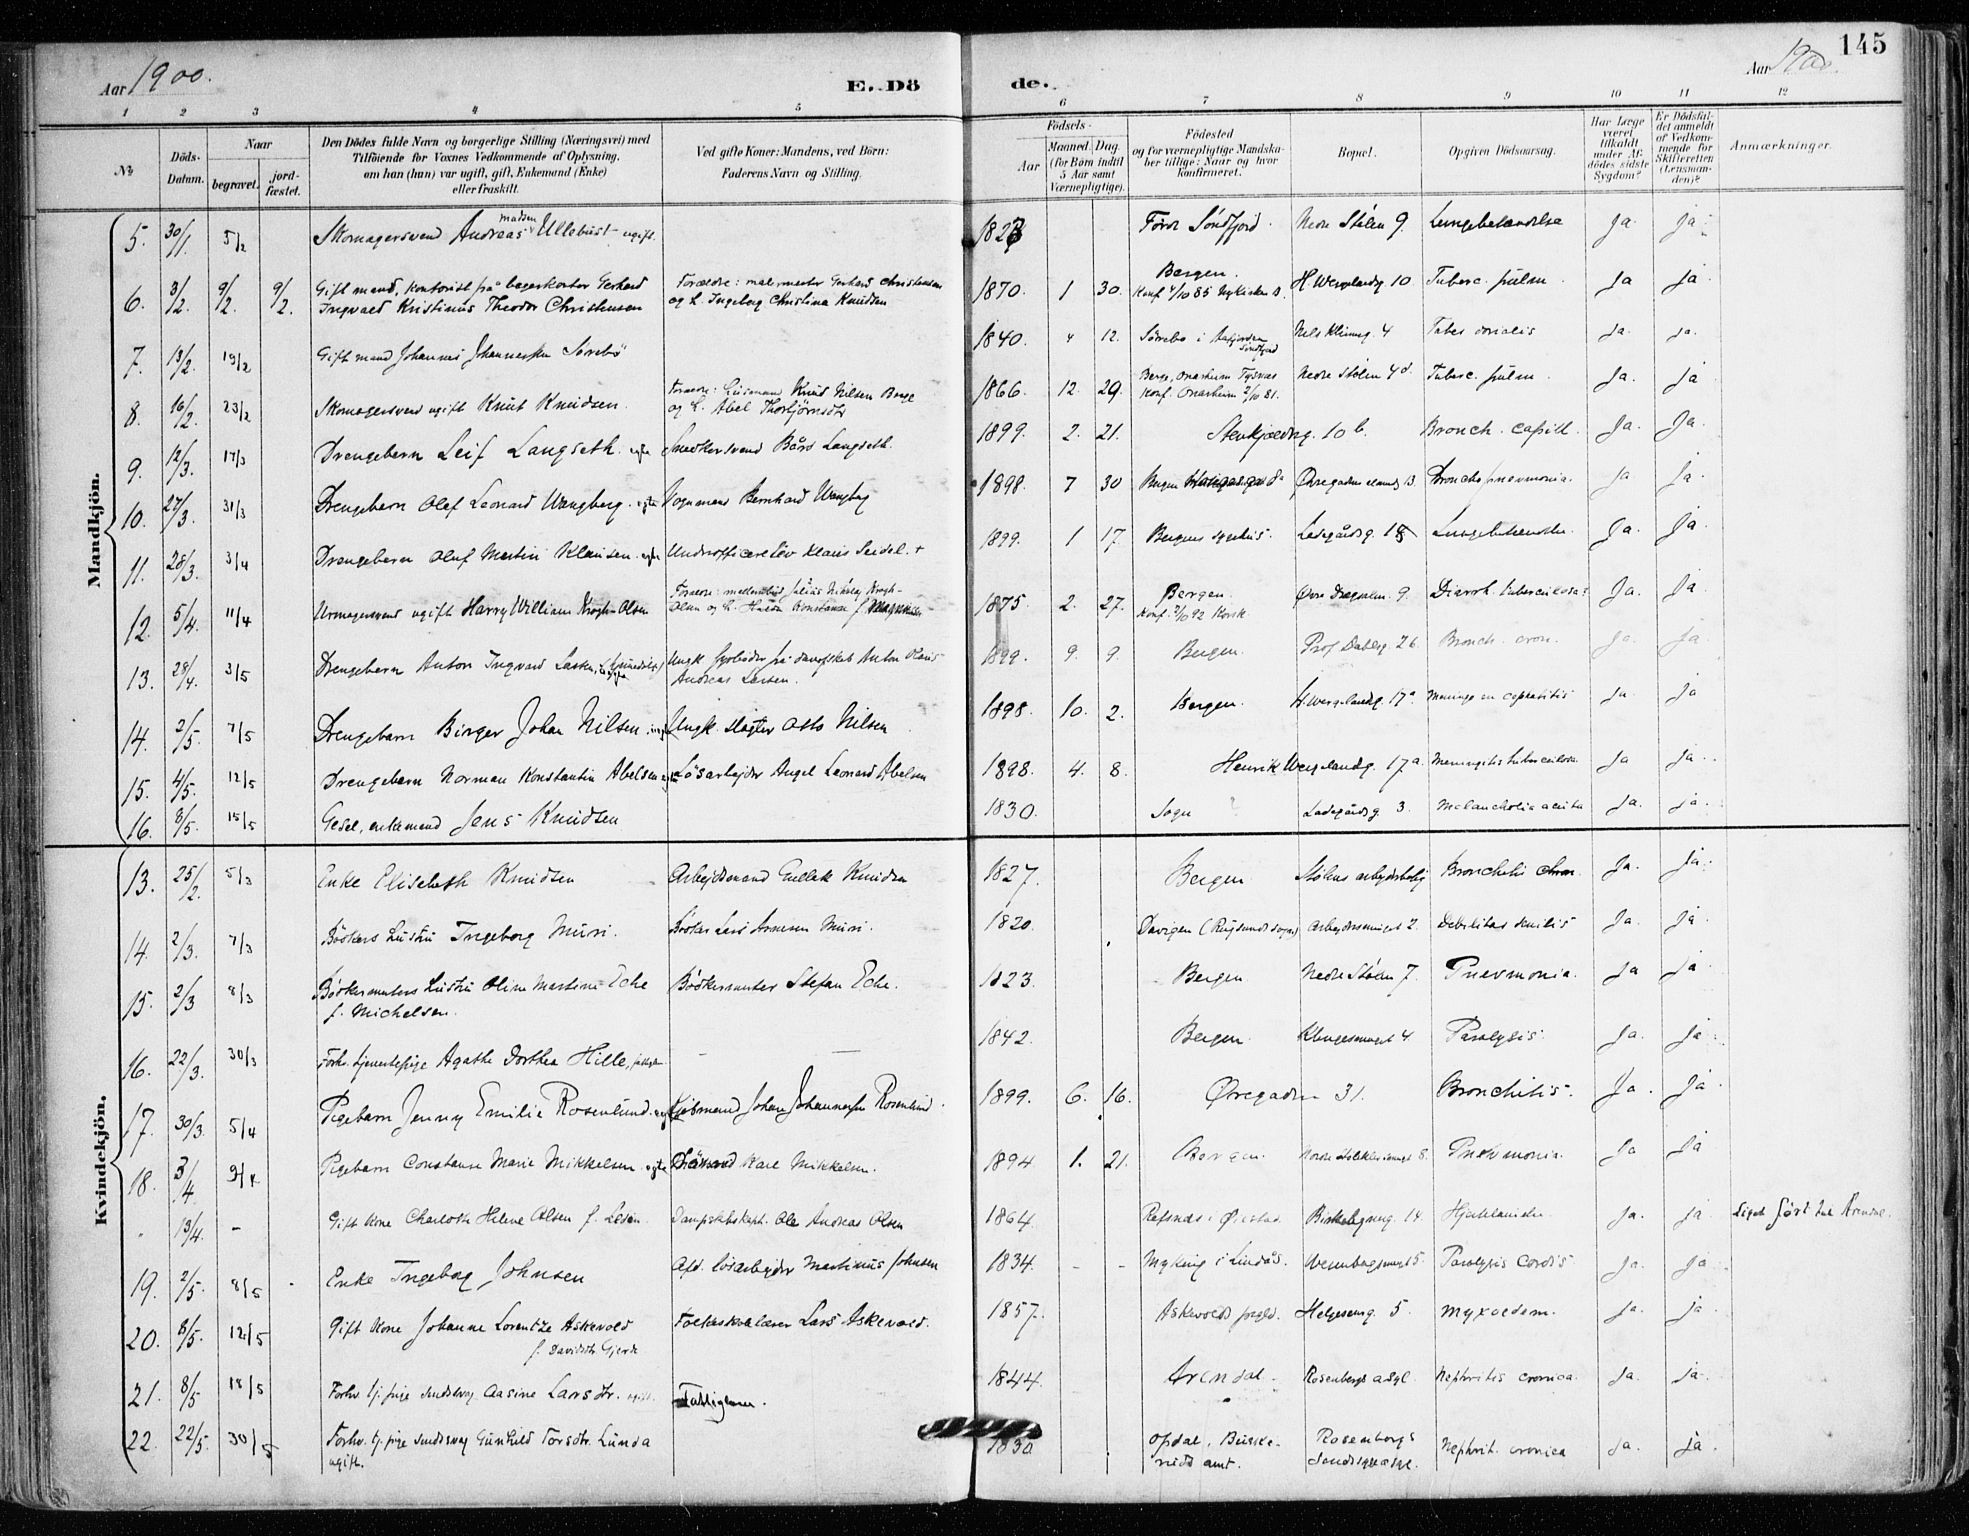 Aar 1900.
E. Dö
de.
Aar 1900.
145
1 2 3 4 5 6 7 8 9 10 11 12
№
Döds-Datum.
Naar
begravet.
jord-fæstet.
Den Dödes fulde Navn og borgerlige Stilling (Næringsvei) med
Tilföiende for Voxnes Vedkommende af Oplysning,
om han (hun) var ugift, gift, Enkemand (Enke)
eller fraskilt.
Ved gifte Koner: Mandens, ved Börn:
Faderens Navn og Stilling.
Födsels-
Aar
Maaned. Dag.
(for Børn indtil
5 Aar samt
Værnepligtige).
Födested
og for værnepligtige Mandska-
ber tillige: Naar og hvor
konfirmeret.
Bopæl.
Opgiven Dödsaarsag.
Har Læge
været
tilkaldt
under Af-
dödes sidste
Sygdom?
Er Dödsfal-
det anmeldt
af Vedkom-
mende for
Skifteretten
(Lensman-
den)?
Anmærkninger.
Mandkjön.
5. 30/1 5/2 Skomagersvend Andreas Madsen Ullebust ugift. 182 Førde Söndfjord. Nedre Stölen 9. Lungebetændelse Ja. Ja.
6. 3/2. 9/2. 9/2. Gift mand, kontorist på lagerkontor Gerhard
Ingvald Kristinus Theodor Christensen
Forældre: malermester Gerhard Christensen
og h. Ingeborg Christina Knudsen
1870. 1 30. Bergen.
Konf 4/10 85 Nykirken B. H. Wergelandsg 10 Tuberc. pulm. Ja Ja
7. 13/2. 19/2 Gift mand Johannes Johannessen Sørebö 1840. 4 12. Sørebø i
Söndfjord Nels Klimsg. 4 Tabes dorsalis Ja. Ja.
8. 16/2. 23/2 Skomagersvend ugift Knut Knudsen.
Forældre: Husmand Knud Nilsen Berge
og h. Abel Thorbjörnsdtr
1866. 12. 29. Berge, Onarheim Tysnes
Konf. Onarheim 2/10 81. Nedre Stölen 4d. Tuberc. pulm. Ja. Ja
9. 12/3. 17/3 Drengebarn Leif Langseth. ægte Snedkersvend Bård Langseth. 1899. 2. 21. Stenkjeldrsg. 10 b. Bronch. capill. Ja. Ja.
10. 27/3. 31/3 Drengebarn Olaf Leonard Wangberg. ægte Vognmand Bernhard Wangberg 1898. 7 30 Bergen Øvregaden 13. Bronchopnevmonia. Ja Ja.
11. 28/3. 3/4 Drengebarn Oluf Martin Klausen. ægte Underofficerselev Klaus Seidel. + 1899. 1 17. Bergens sygehus. Ladegårdsg. 18 Lungebetændelse. Ja. Ja.
12. 5/4. 11/4 Urmagersvend ugift Harry William Krogh-Olsen
Olsen og h. Hulda Konstance f.
1875 2. 27. Bergen.
Konf. 2/10 92 Korsk Øvre Dregsalm. 9. Diarrh. tuberculosa. Ja. Ja.
13. 28/4. 3/5 Drengebarn Anton Ingvard Larsen, uægte Ungk. fyrbøder på dampskib Anton Olaus
Andreas Larsen. 1899. 9. 9. Bergen. Prof. Dahlsg. 26. Bronch. cron. Ja. Ja.
14. 2/5. 7/5 Drengebarn Birger Johan Nilsen. uægte Ungk. slagter Otto Nilsen 1898. 10. 2. Bergen. H. Wergelandsg. 17a Mening. en cephalitis Ja Ja
15. 4/5. 12/5 Drengebarn Norman Konstantin Abelsen ægte Løsarbejder Angel Leonard Abelsen 1898. 4. 8. Henrik Wergelandsg. 17a. Meningitis tuberculosa Ja Ja.
16. 8/5. 15/5 Gesel, enkemand Jens Knudsen 1830. Sogn ? Ladegårdsg. 3. Melancholia acuta Ja. Ja.
Kvindekjön.
13. 25/2. 5/3 Enke Elisabeth Knudsen Arbejdsmand Gullek Knudsen 1827. Bergen Stølens arbejderbolig Bronchitis chron. Ja. Ja.
14. 2/3. 7/3 Bödkers hustru Ingeborg Muri. Bödker Lars Muri. 1820. Davigen (Rugsunds sogn) 2. Debilitas senilis Ja. Ja
15. 2/3 8/3 Bödkermesters hustru Oline Martine Eche
f. Michelsen.
Bödkermester Stefan Eche. 1823. Bergen Nedre Stölen 7. Pnevmonia. Ja Ja
16. 22/3. 30/3 Forhv. tjenestepige Agathe Dorthea Hille, — — 1842. Bergen. Klingesmuget 4 Paralysis. Ja. Ja.
17. 30/3. 5/4 Pigebarn Jenny Emilie Rosenlund. ægte Kjöbmand Johan Johannessen Rosenlund. 1899. 6. 16. Øvregaden 31. Bronchitis. Ja. Ja
18. 3/4 9/4. Pigebarn Constanse Marie Mikkelsen. ægte Karl Mikkelsen. 1894 1. 21. Bergen. 8. Pnevmonia. Ja Ja
13/4. - Gift kone Charlotte Helene Olsen f. Dampskibskapt. Ole Andreas Olsen 1864. Refsnes i Øiestad. Birkebeinerg. 14. Hjertelammelse. Ja. Ja. Liget ført til Arendal.
19. 2/5. 8/5 Enke Ingeborg Johnsen Afd. løsarbejder Martinus Johnsen 1834. - - Myking i Lindås. Wesenbergsmuget 5. Paralysis cordis Ja. Ja
20. 8/5. 12/5 Gift kone Johanne Lorentze Askevold
f. Davidsdtr. Gjerde
Folkeskolelærer Lars Askevold. 1857. Askevolds prgld. Helgesensg. 5. Myxoedem. Ja. Ja.
21. 8/5 18/5 Forhv. tj. pige sindssvag Aasine Larsdtr. ugift. Fattiglem. 1844. Arendal. Rosenbergs asyl. Nephritis cronica Ja. Ja.
22. 22/5. 30/5 Forhv. tj. pige sindssvag Gunhild Torsdtr. Lunda
ugift.
1830 Opdal, Buske-
ruds amt. Rosenbergs
Sindssygeasyl. Nephrit. cronica Ja. Ja.